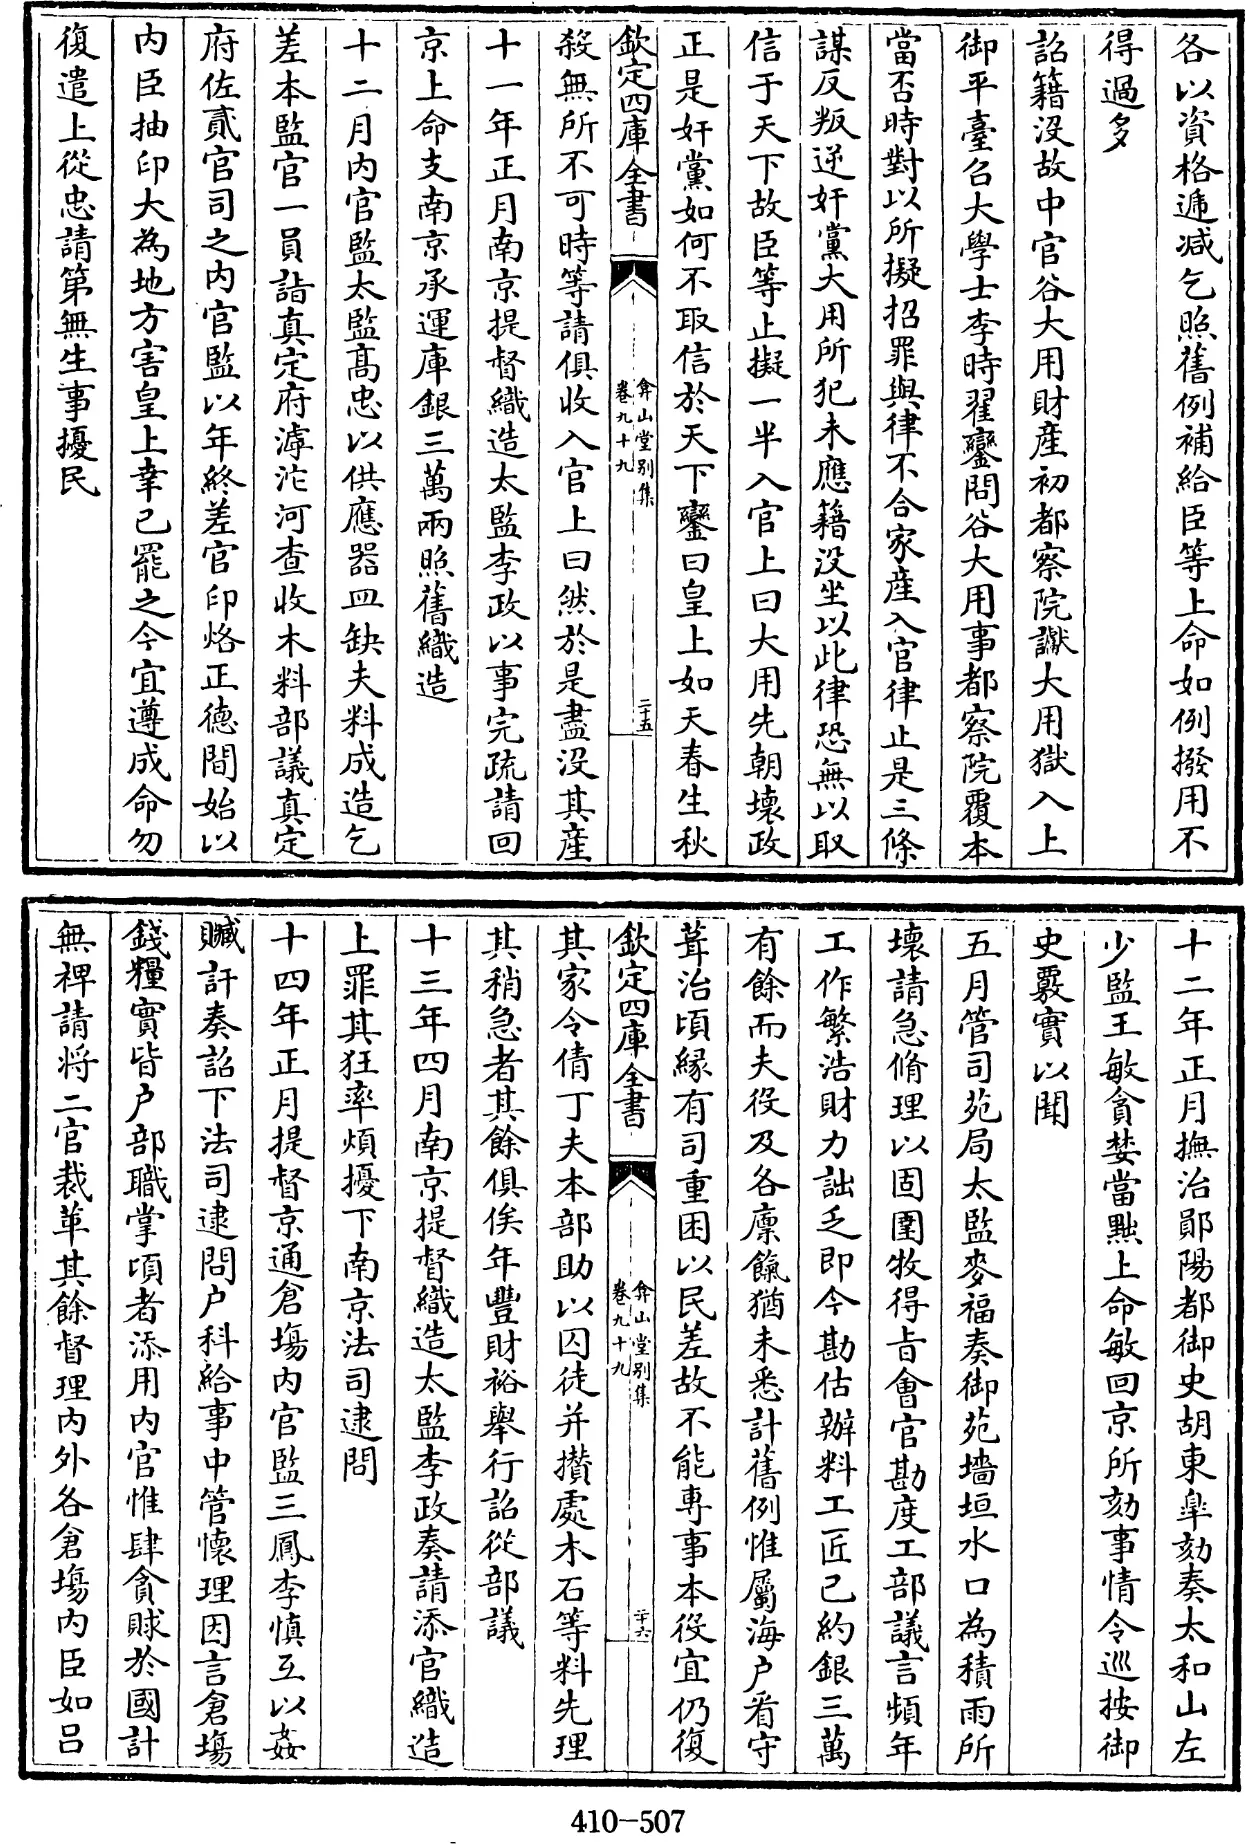 各以資格遞減乞照舊例補給臣等上命如例撥用不
得過多
詔籍没故中官谷大用財産初都察院讞大用獄入上
御平臺召大學士李時翟鑾問谷大用事都察院覆本
當否時對以所擬招罪與律不合家産入官律止是三條
謀反叛逆奸黨大用所犯未應籍没坐以此律恐無以取
信于天下故臣等止擬一半入官上曰大用先朝壊政
正是奸黨如何不取信於天下鑾曰皇上如天春生秋
欽定四庫全書
弇山堂别集
卷九十九
二十五
殺無所不可時等請俱收入官上曰然於是盡没其産
十一年正月南京提督織造太監李政以事完疏請回
京上命支南京承運庫銀三萬兩照舊織造
十二月内官監太監髙忠以供應器皿缺夫料成造乞
差本監官一員詣真定府滹沱河查收木料部議真定
府佐貳官司之内官監以年終差官印烙正德間始以
内臣抽印大為地方害皇上幸已罷之今宜遵成命勿
復遣上從忠請第無生事擾民
十二年正月撫治鄖陽都御史胡東臯劾奏太和山左
少監王敏貪婪當黜上命敏回京所劾事情令巡按御
史覈實以聞
五月管司苑局太監麥福奏御苑墻垣水口為積雨所
壊請急脩理以固圉牧得旨會官勘度工部議言頻年
工作繁浩財力詘乏即今勘估辦料工匠已約銀三萬
有餘而夫役及各廪餼猶未悉計舊例惟屬海户看守
葺治頃縁有司重困以民差故不能專事本役宜仍復
欽定四庫全書
弇山堂别集
卷九十九
二十六
其家令倩丁夫本部助以囚徒并攢處木石等料先理
其稍急者其餘俱俟年豐財裕舉行詔從部議
十三年四月南京提督織造太監李政奏請添官織造
上罪其狂率煩擾下南京法司逮問
十四年正月提督京通倉塲内官監三鳳李慎互以姦
贜訐奏詔下法司逮問户科給事中管懷理因言倉塲
錢糧實皆户部職掌頃者添用内官惟肆貪賕於國計
無裨請将二官裁革其餘督理内外各倉塲内臣如吕
410-507